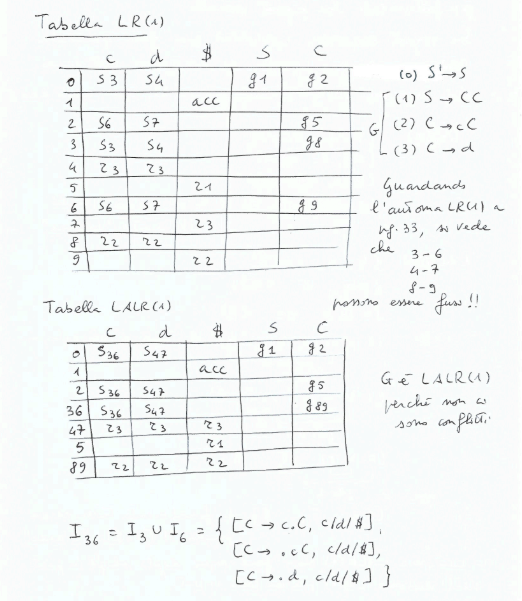 Tabella LR(1)
c d $ S C
0 s3 s4 g1 g2
1 acc
2 s6 s7 g5
3 s3 s4 g8
4 r3 r3
5 r1
6 s6 s7 g9
7 r3
8 r2 r2
9 r2
(0) S' → S
G (1) S → CC
(2) C → cC
(3) C → d
Guardando
l'automa LR(1) a
pg. 33, si vede
che 3-6
4-7
8-9
possono essere fusi !!
Tabella LALR(1)
c d $ S C
0 s36 s47 g1 g2
1 acc
2 s36 s47 g5
36 s36 s47 g89
47 r3 r3 r3
5 r1
89 r2 r2 r2
G è LALR(1)
perché non ci
sono conflitti
I36 = I3 ∪ I6 = { [C → c.C, c/d/$],
[C → .cC, c/d/$],
[C → .d, c/d/$] }